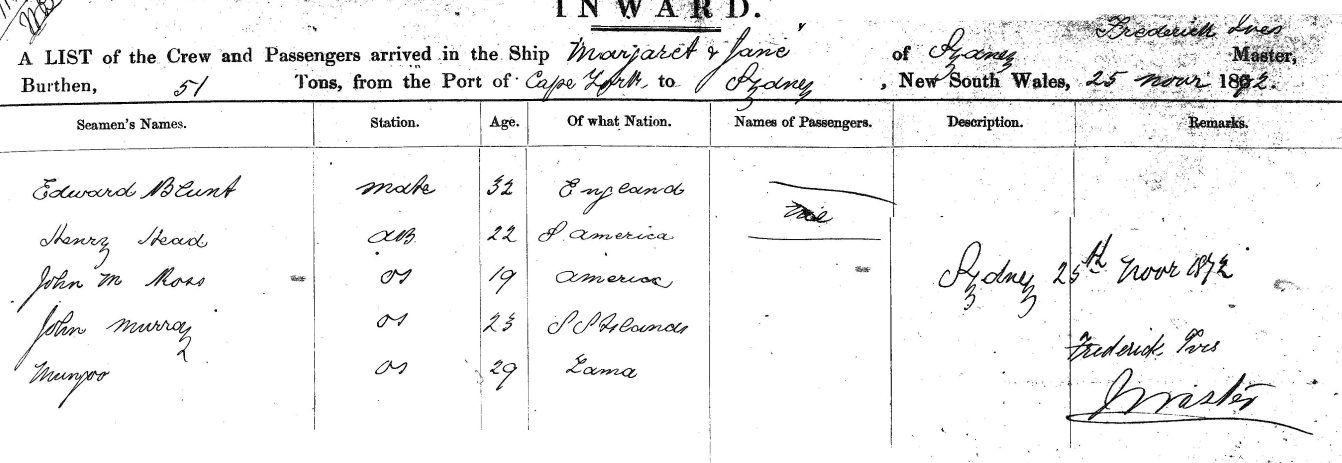 INWARD.
Frederick Ives
A LIST of the Crew and Passengers arrived in the Ship Margaret & Jane of Sydney Master,
Burthen, 51 Tons, from the Port of Cape York to Sydney, New South Wales, 25 Novr 1872.
Seamen's Names. Station. Age. Of what Nation. Names of Passengers. Description. Remarks.
Edward Blunt mate 32 England
Henry Head AB 22 S America
John M Ross OS 19 America
Sydney 25th Novr 1872
John Murray OS 23 S S Islands
Frederick Ives
OS 29
Master